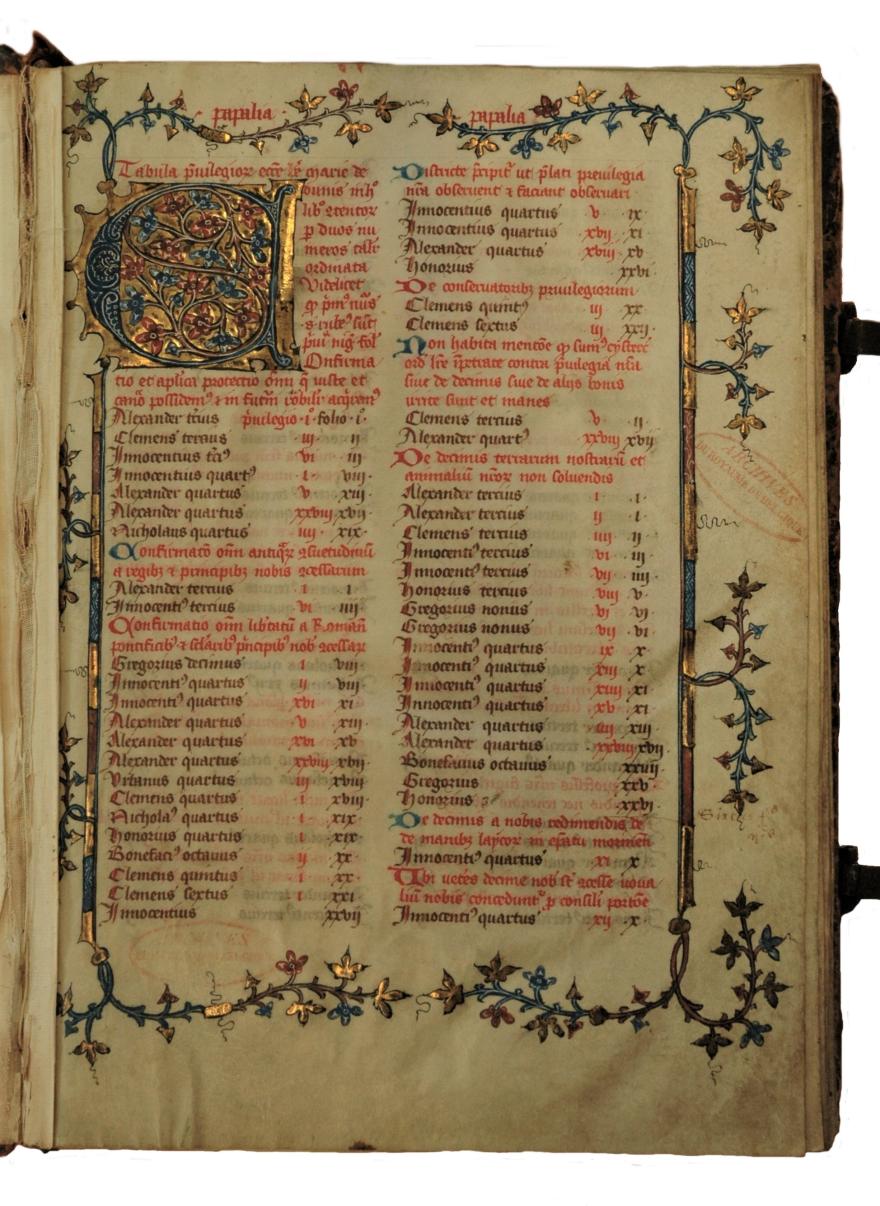 papalia
papalia
Tabula p̄uilegiorꝝ eccē bē marie de
dunis in hͦ
libͦ ↄtentoꝝ
ꝑ duos nu
meros talit
ordinata
Videlicet
ꝙ pͥmꝰ nūꝰ
fol
Onfirma
tio et aplica protectio om̄i q̄ iuste et
cano possidemꝰ ⁊ in futuꝝ
Alexander t͛ciꝰ p̄uilegio · i · folio · i ·
Clemens tercius iii · ii
Innocentius t͛cꝰ vi iii
Innocentius quartꝰ · i · viii ·
Alexander quartus v · xiii ·
Alexander quartus xxviii xvii ·
Nicholaus quartus iiii · xix ·
Confirmaco om̄ antiqꝝ ↄsuetudinū
a regibꝫ ⁊ principibꝫ nobis ↄcessarum
Alexander tercius i i
Innocentiꝰ tercius vi iiii ·
Confirmatio om̄ lib͛tatū a Roman
pontificibꝰ ⁊ sclarib pͥncipibꝰ nob ↄcessaꝝ
Gregorius decimus i viii ·
Innocentiꝰ quartus ii viii ·
Innocentiꝰ quartus xvi · xi ·
Alexander quartus v · xiii ·
Alexander quartus xvi · xv
Alexander quartus xxviii · xvii ·
Vrbanus quartus iii · xviii ·
Clemens quartus i · xviii ·
Nicholaꝰ quartus i · xix ·
Honorius quartus i · xix ·
Bonefaciꝰ octauus ii · xx ·
Clemens quintus i · xx ·
Clemens sextus i xxi
Innocentius xxvii
Districte p̄cipit͛ ut p̄lati preuilegia
nr̄a obseruent ⁊ faciant obseruari
Innocentius quartus v ix ·
Innocentius quartus xvii · xi
Alexander quartus xviii · xv
Honorius xxvi ·
De conseruatoribꝫ priuilegiorum
Clemens quintꝰ iii xx
Clemens sextus iii xxii
Non habita mentōe ꝙ sumꝰ cysterc̄
ord lr̄e īpetrate contra p̄uilegia nr̄a
siue de decimis siue de alijs bonis
irrite sunt et inanes
Clemens tercius v · ii
Alexander quartꝰ xxviii xvii ·
De decimis terrarum nostrarū et
animaliū nr̄orꝫ non soluendis
Alexander tercius · i · · i ·
Alexander tercius ii i ·
Clemens tercius iii · ii
Innocentiꝰ tercius vi · iii
Innocentiꝰ tercius vii · iiii ·
Honorius tercius viii v ·
Gregorius nonus vi vi ·
Gregorius nonus vii · vi ·
Innocentiꝰ quartus ix · x ·
Innocentiꝰ quartus xiii · x ·
Innocentiꝰ quartus xiiii · xi ·
Innocentiꝰ quartus xv · xi ·
Alexander quartus iiii xiii ·
Alexander quartus xxviii xvii ·
Bonefatius octauus xxvii ·
Gregorius xxv ·
Honorius xxvi ·
De decimis a nobis redimendis de
de manibꝫ laycoꝝ in ep̄atu morinen̄
Innocentiꝰ quartus xi · x ·
Ubi vetēs decime nob st̄ ↄcesse noua
liū nobis conceduntꝰ ꝑ consili portōe
Innocentiꝰ quartus xii · x ·
ARCHIVES